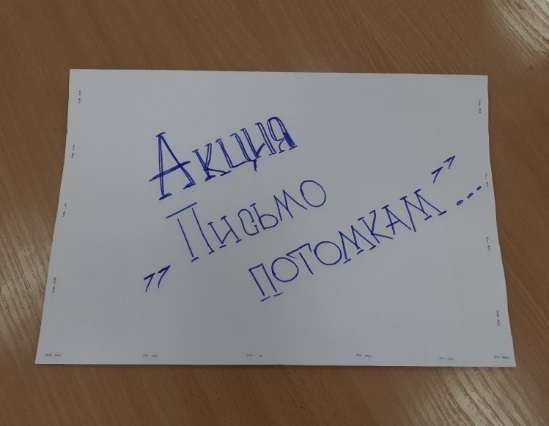 Акция
„Письмо
потомкам"...